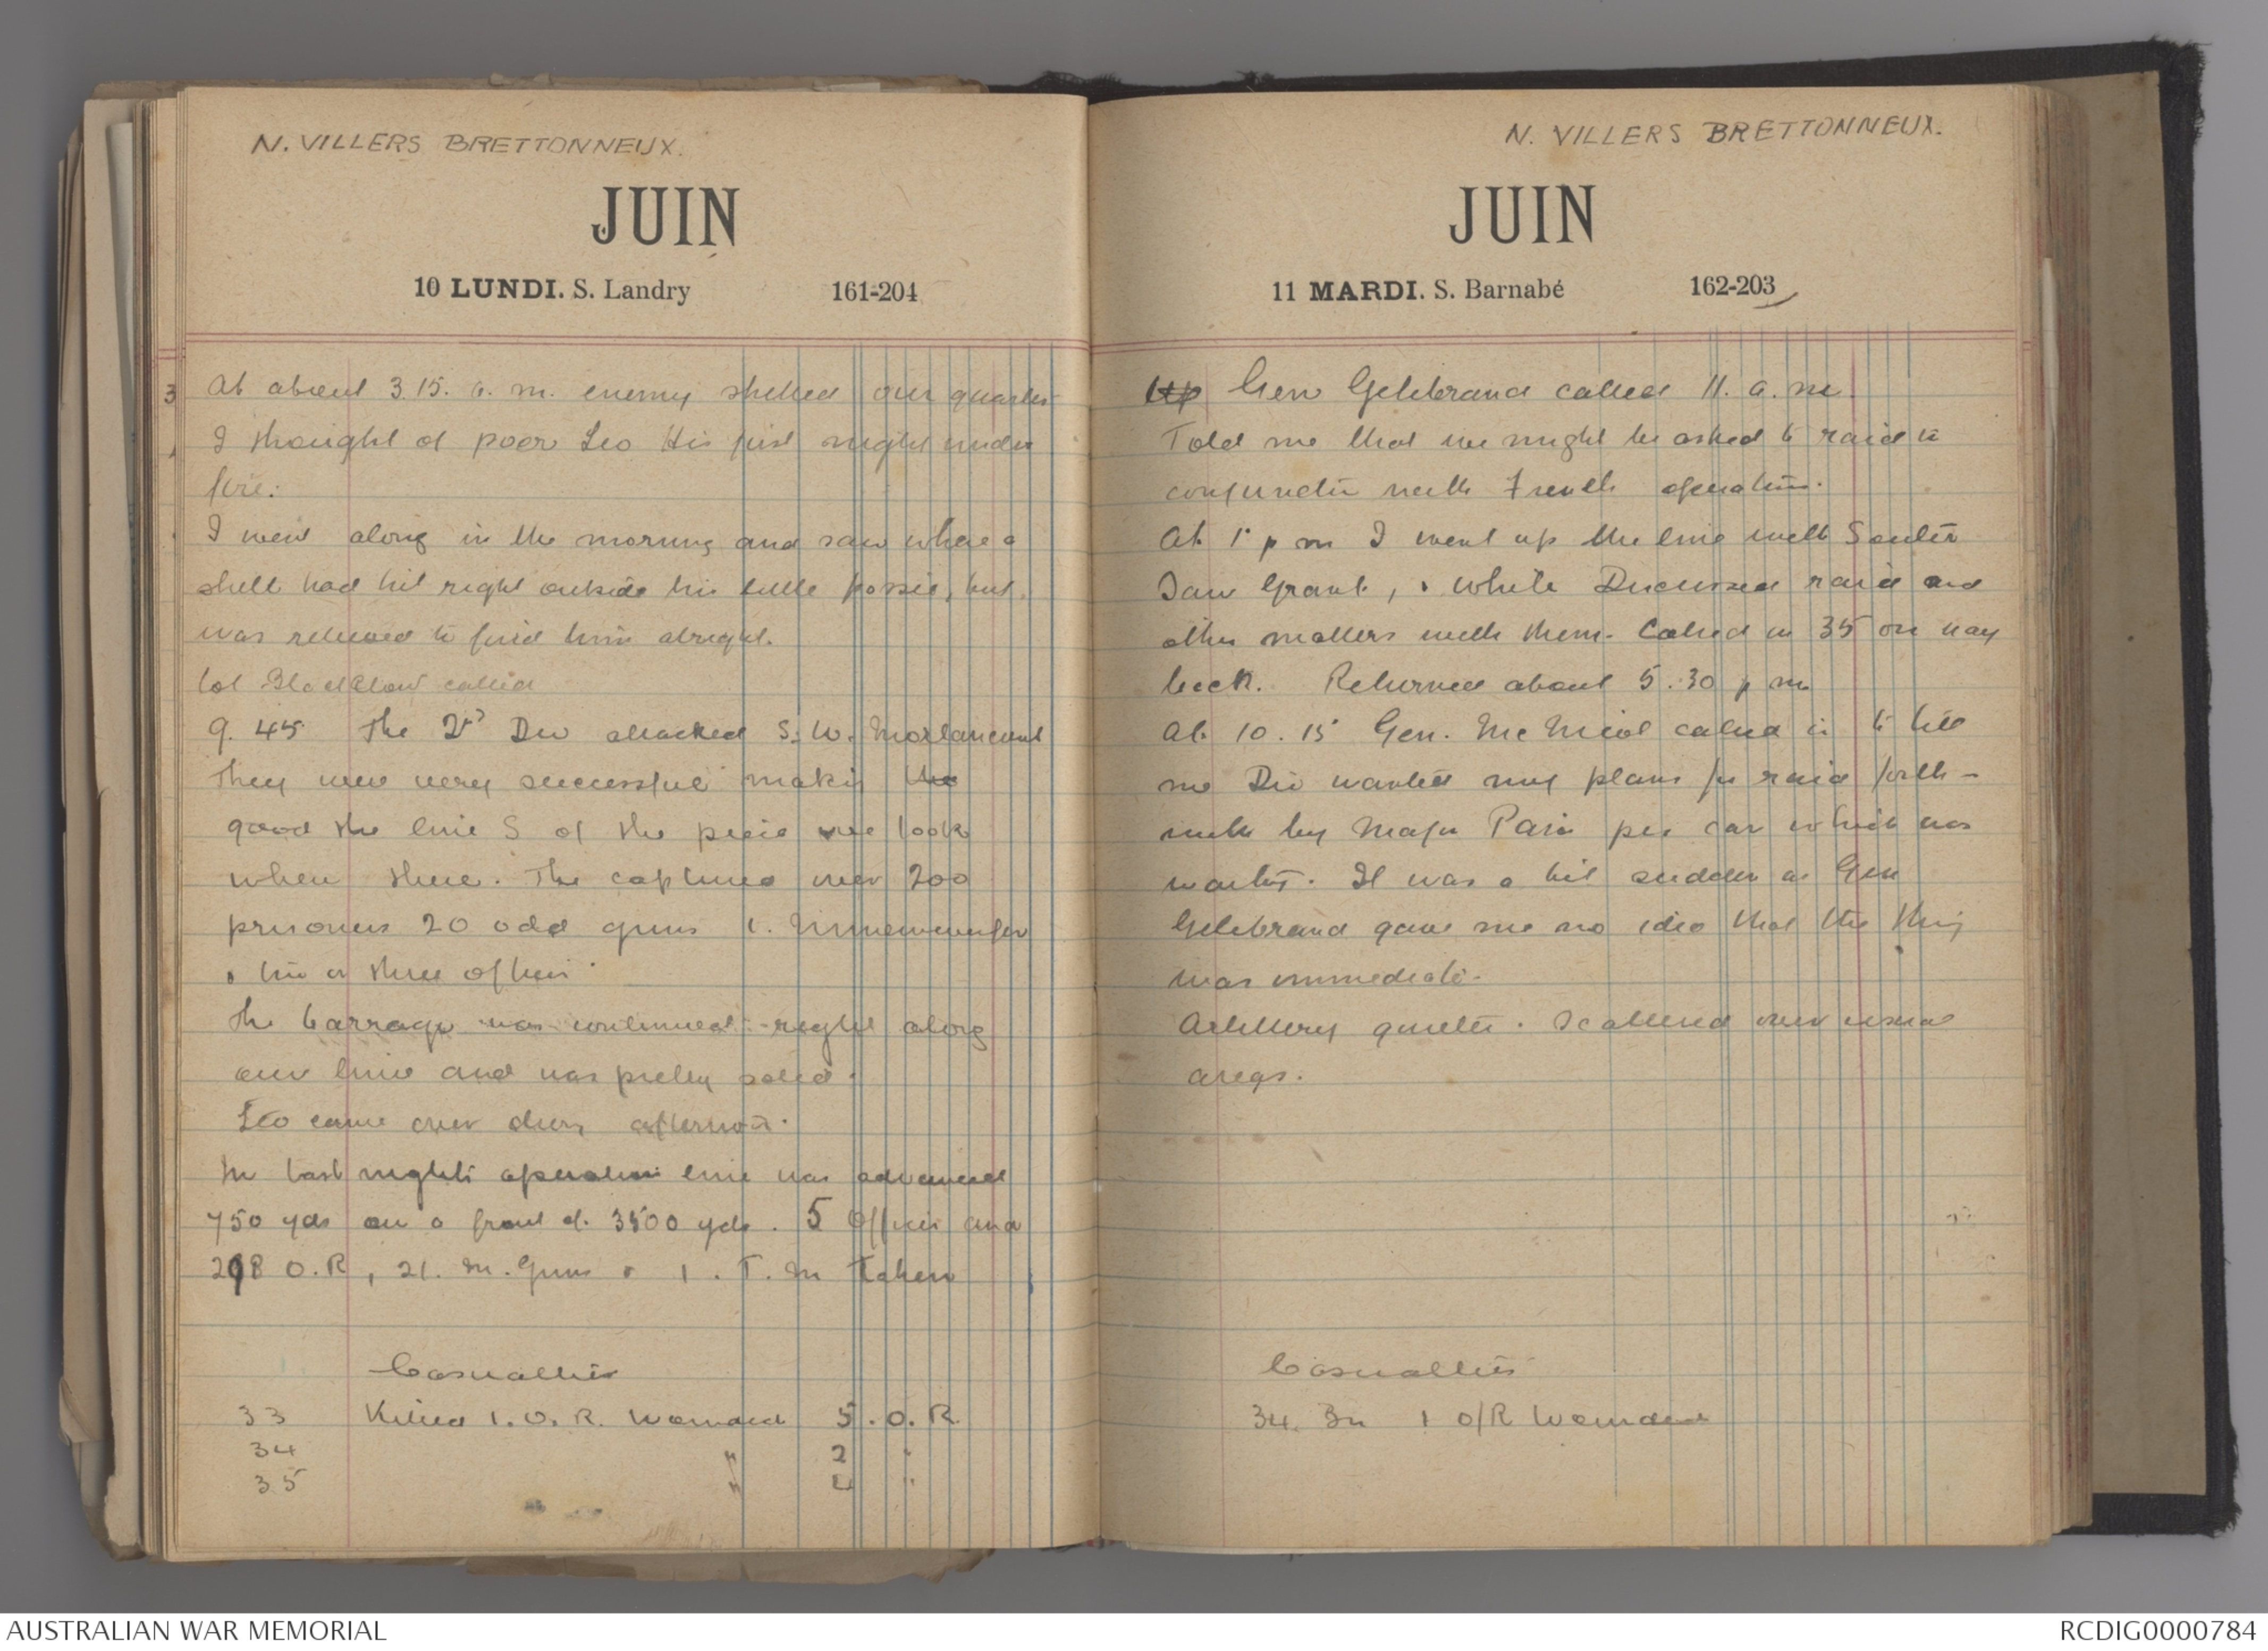 N. VILLERS BRETTONNEUX.
JUIN
10 LUNDI. S. Landry 161-204
3
At about 3.15. a.m. enemy shelled our quarters
I thought of poor Leo His first night under
fire.
I went along in the morning and saw where a
shell had hit right outside his little possie, but
was relieved to find him alright.
Col called
9.45 The 2nd Div attacked S.W. Morlancourt
They were very successful making the
good the line S of the piece we took
when there. The captured over 200
prisoners 20 odd guns 1. Minnewerfer
& two or three officers
The barrage was continued right along
our line and was pretty solid.
Leo came over during afternoon.
In last nights operation line was advanced
750 yds on a front of 3500 yds. 5 Officers and
298 O.R, 21. M. Guns & 1. T. M Taken
Casualties
33 Killed 1. O. R. Wounded 5. O. R.
34 " 2 "
35 " 4 "
N. VILLERS BRETTONNEUX.
JUIN
11 MARDI. S. Barnabé 162-203
Up Gen Gelibrand called 11. a.m.
Told me that we might be asked to raid in
conjunction with French operation.
At 1 pm I went up the line with Souter
Saw Grant, & White Discussed raid and
other matters with them. Called in 35 on way
back. Returned about 5.30 pm
At 10.15 Gen. McNicol called in to tell
me Div wanted my plans for raid forth-
with by Major Pain per car which was
waiting. It was a bit sudden as Gen
Gelibrand gave me no idea that the thing
was immediate.
Artillery quieter. Scattered over usual
areas.
Casualties
34. Bn 1 O/R Wounded
AUSTRALIAN WAR MEMORIAL
RCDIG0000784